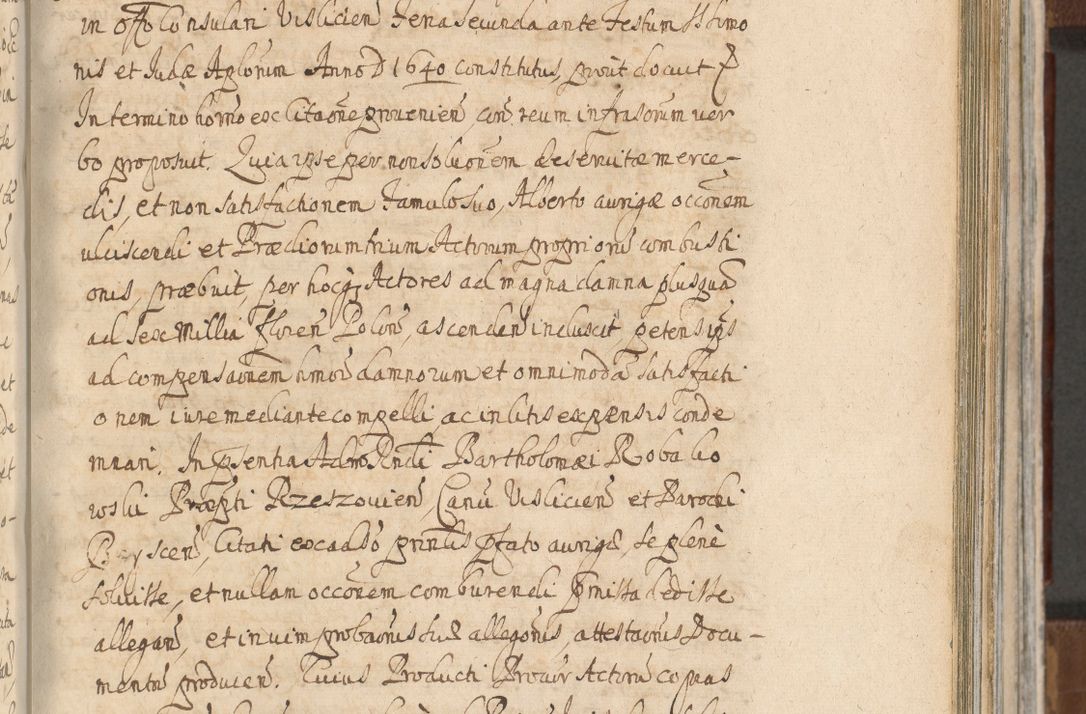 in Offo Consulari Vislicien Feria Secunda ante Festum SSimo
nis et Judæ Aplorum Anno D 1640 constitutus, prout docuit
In termino horno ex Citaone provenien, con reum infrasorum ver
bo proposuit. Quia ipse per non solucionem deservitæ merce-
dis, et non satisfactionem Famulo Suo, Alberto aurigæ occonem
ulciscendi et Prædiorum trium Actorum propriorum combusti
onis, præbuit, per hocq Actores ad magna damna plusquam
ad Sex Millia Floren Polon, ascenden induxit, peten
ad compensaonem hmoi damnorum et omnimodam satisfacti
onem iure mediante compelli, ac in litis expensis conde
mnari. In psentia Admo Rndi Bartholomæi Robako
wski Præpti Rzeszovien, Canci Vislicien et Parochi
Citati ex adso prinlis pfato aurigæ, se plene
solvisse, et nullam occonem comburendi pmissa dedisse
allegan, et in vim probaonis suæ allegonis, attestaonis Docu-
mentum producen. Cuius Producti Procur Actorum copias